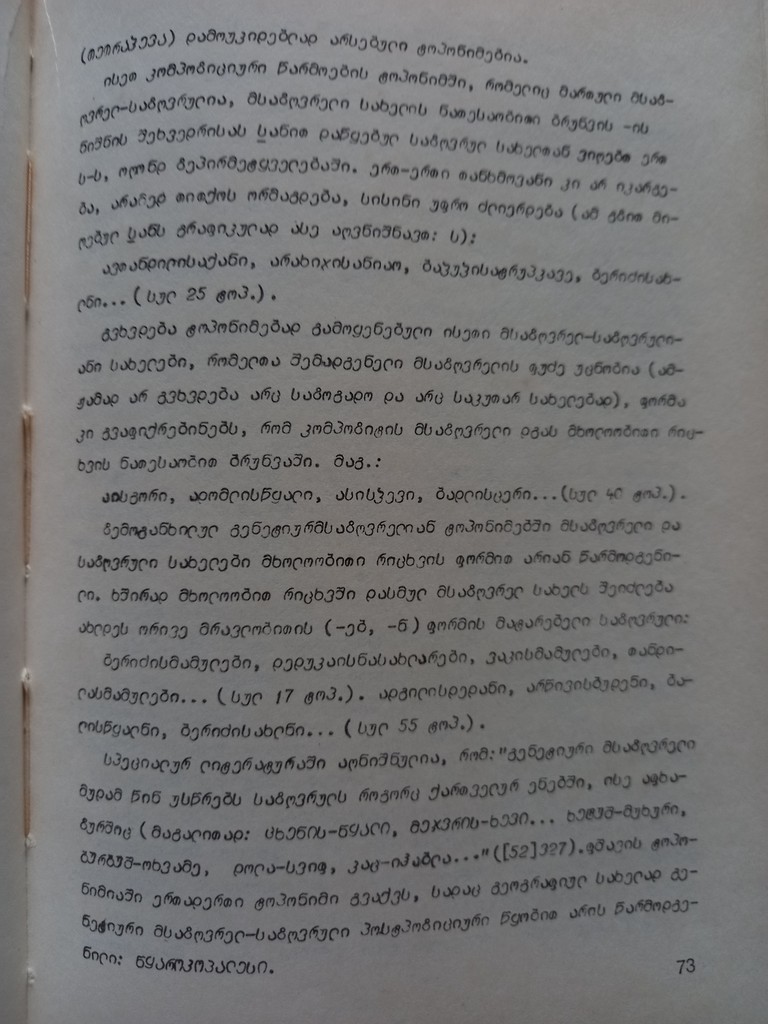 (თეთრაჰევა) დამოუკიდებლად არსებული ტოპონიმებია.
ისეთ კომპოზიციური წარმოების ტოპონიმში, რომელიც მართული მსაზ-
ღვრელ-საზღვრულია, მსაზღვრელი სახელის ნათესაობითი ბრუნვის -ის
ნიშნის შეხვედრისას სანით დაწყებულ საზღვრულ სახელთან ვიღებთ ერთ
ს-ს, ოღონდ ზეპირმეტყველებაში. ერთ-ერთი თანხმოვანი კი არ იკარგე-
ბა, არამედ თითქოს ორმაგდება, სისინი უფრო ძლიერდება (ამ გზით მი-
ღებულ სანს გრაფიკულად ასე აღვნიშნავთ: ს):
ავთანდილისაქანი, არახიჯისანიაო, ბერიძისახ-
ლნი... (სულ 25 ტოპ.).
გვხვდება ტოპონიმებად გამოყენებული ისეთი მსაზღვრელ-საზღვრული-
ანი სახელები, რომელთა შემადგენელი მსაზღვრელის ფუძე უცნობია (ამ-
ჟამად არ გვხვდება არც საზოგადო და არც საკუთარ სახელებად), ფორმა
კი გვაფიქრებინებს, რომ კომპოზიტის მსაზღვრელი დგას მხოლოობითი რიც-
ხვის ნათესაობით ბრუნვაში. მაგ.:
აისგორი, ადომლისწყალი, ასისჭევი, ბადლისცერი...(სულ 40 ტოპ.).
ზემოგანხილულ გენეტიურმსაზღვრელიან ტოპონიმებში მსაზღვრელი და
საზღვრული სახელები მხოლოობითი რიცხვის ფორმით არიან წარმოდგენი-
ლი. ხშირად მხოლოობით რიცხვში დასმულ მსაზღვრელ სახელს შეიძლება
ახლდეს ორივე მრავლობითის (-ებ, -ნ) ფორმის მატარებელი საზღვრული:
ბერიძისმამულები, დედუკაისნასახლარები, ვაკისმამულები, თანდი-
ლასმამულები... (სულ 17 ტოპ.). ადგილისდედანი, არწივისბუდენი, ბა-
ლისწყალნი, ბერიძისახლნი... (სულ 55 ტოპ.).
სპეციალურ ლიტერატურაში აღნიშნულია, რომ: "გენეტიური მსაზღვრელი
მუდამ წინ უსწრებს საზღვრულს როგორც ქართველურ ენებში, ისე აფხა-
ზურშიც (მაგალითად: ცხენის-წყალი, მეჯვრის-ხევი... ხეტუმ-მუხური,
ბურბუმ-ოხვამე, დოლა-სვიფ, კაც-იჰაბლა..." ([52]327). ფშავის ტოპო-
ნიმიაში ერთადერთი ტოპონიმი გვაქვს, სადაც გეოგრაფიულ სახელად გე-
ნეტიური მსაზღვრელ-საზღვრული პოსტპოზიციური წყობით არის წარმოდგე-
ნილი: წყაროპოპალესი.
73